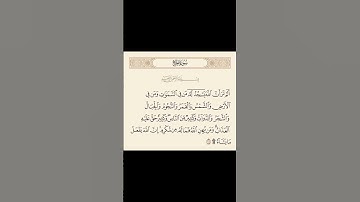 سورة الحج
أَلَمْ تَرَ أَنَّ ٱللَّهَ يَسْجُدُ لَهُۥ مَن فِى ٱلسَّمَٰوَٰتِ وَمَن فِى
ٱلْأَرْضِ وَٱلشَّمْسُ وَٱلْقَمَرُ وَٱلنُّجُومُ وَٱلْجِبَالُ
وَٱلشَّجَرُ وَٱلدَّوَآبُّ وَكَثِيرٌ مِّنَ ٱلنَّاسِ وَكَثِيرٌ حَقَّ عَلَيْهِ
ٱلْعَذَابُ وَمَن يُهِنِ ٱللَّهُ فَمَا لَهُۥ مِن مُّكْرِمٍ إِنَّ ٱللَّهَ يَفْعَلُ
مَا يَشَآءُ ۩